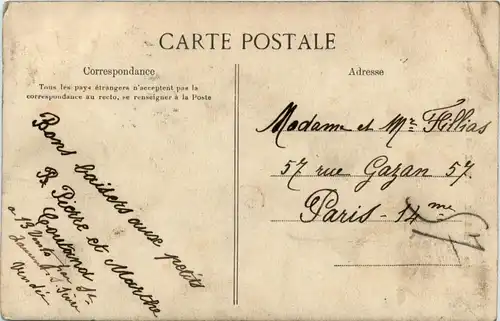 CARTE POSTALE
Correspondance
Tous les pays étrangers n'acceptent pas la
correspondance au recto, se renseigner à la Poste
Bons baisers aux petits
Pierre et Marthe
Coutand
à 13 Vents par
Vendée
Adresse
Madame et Mr Fillias
57 rue Gazan 57.
Paris-14me